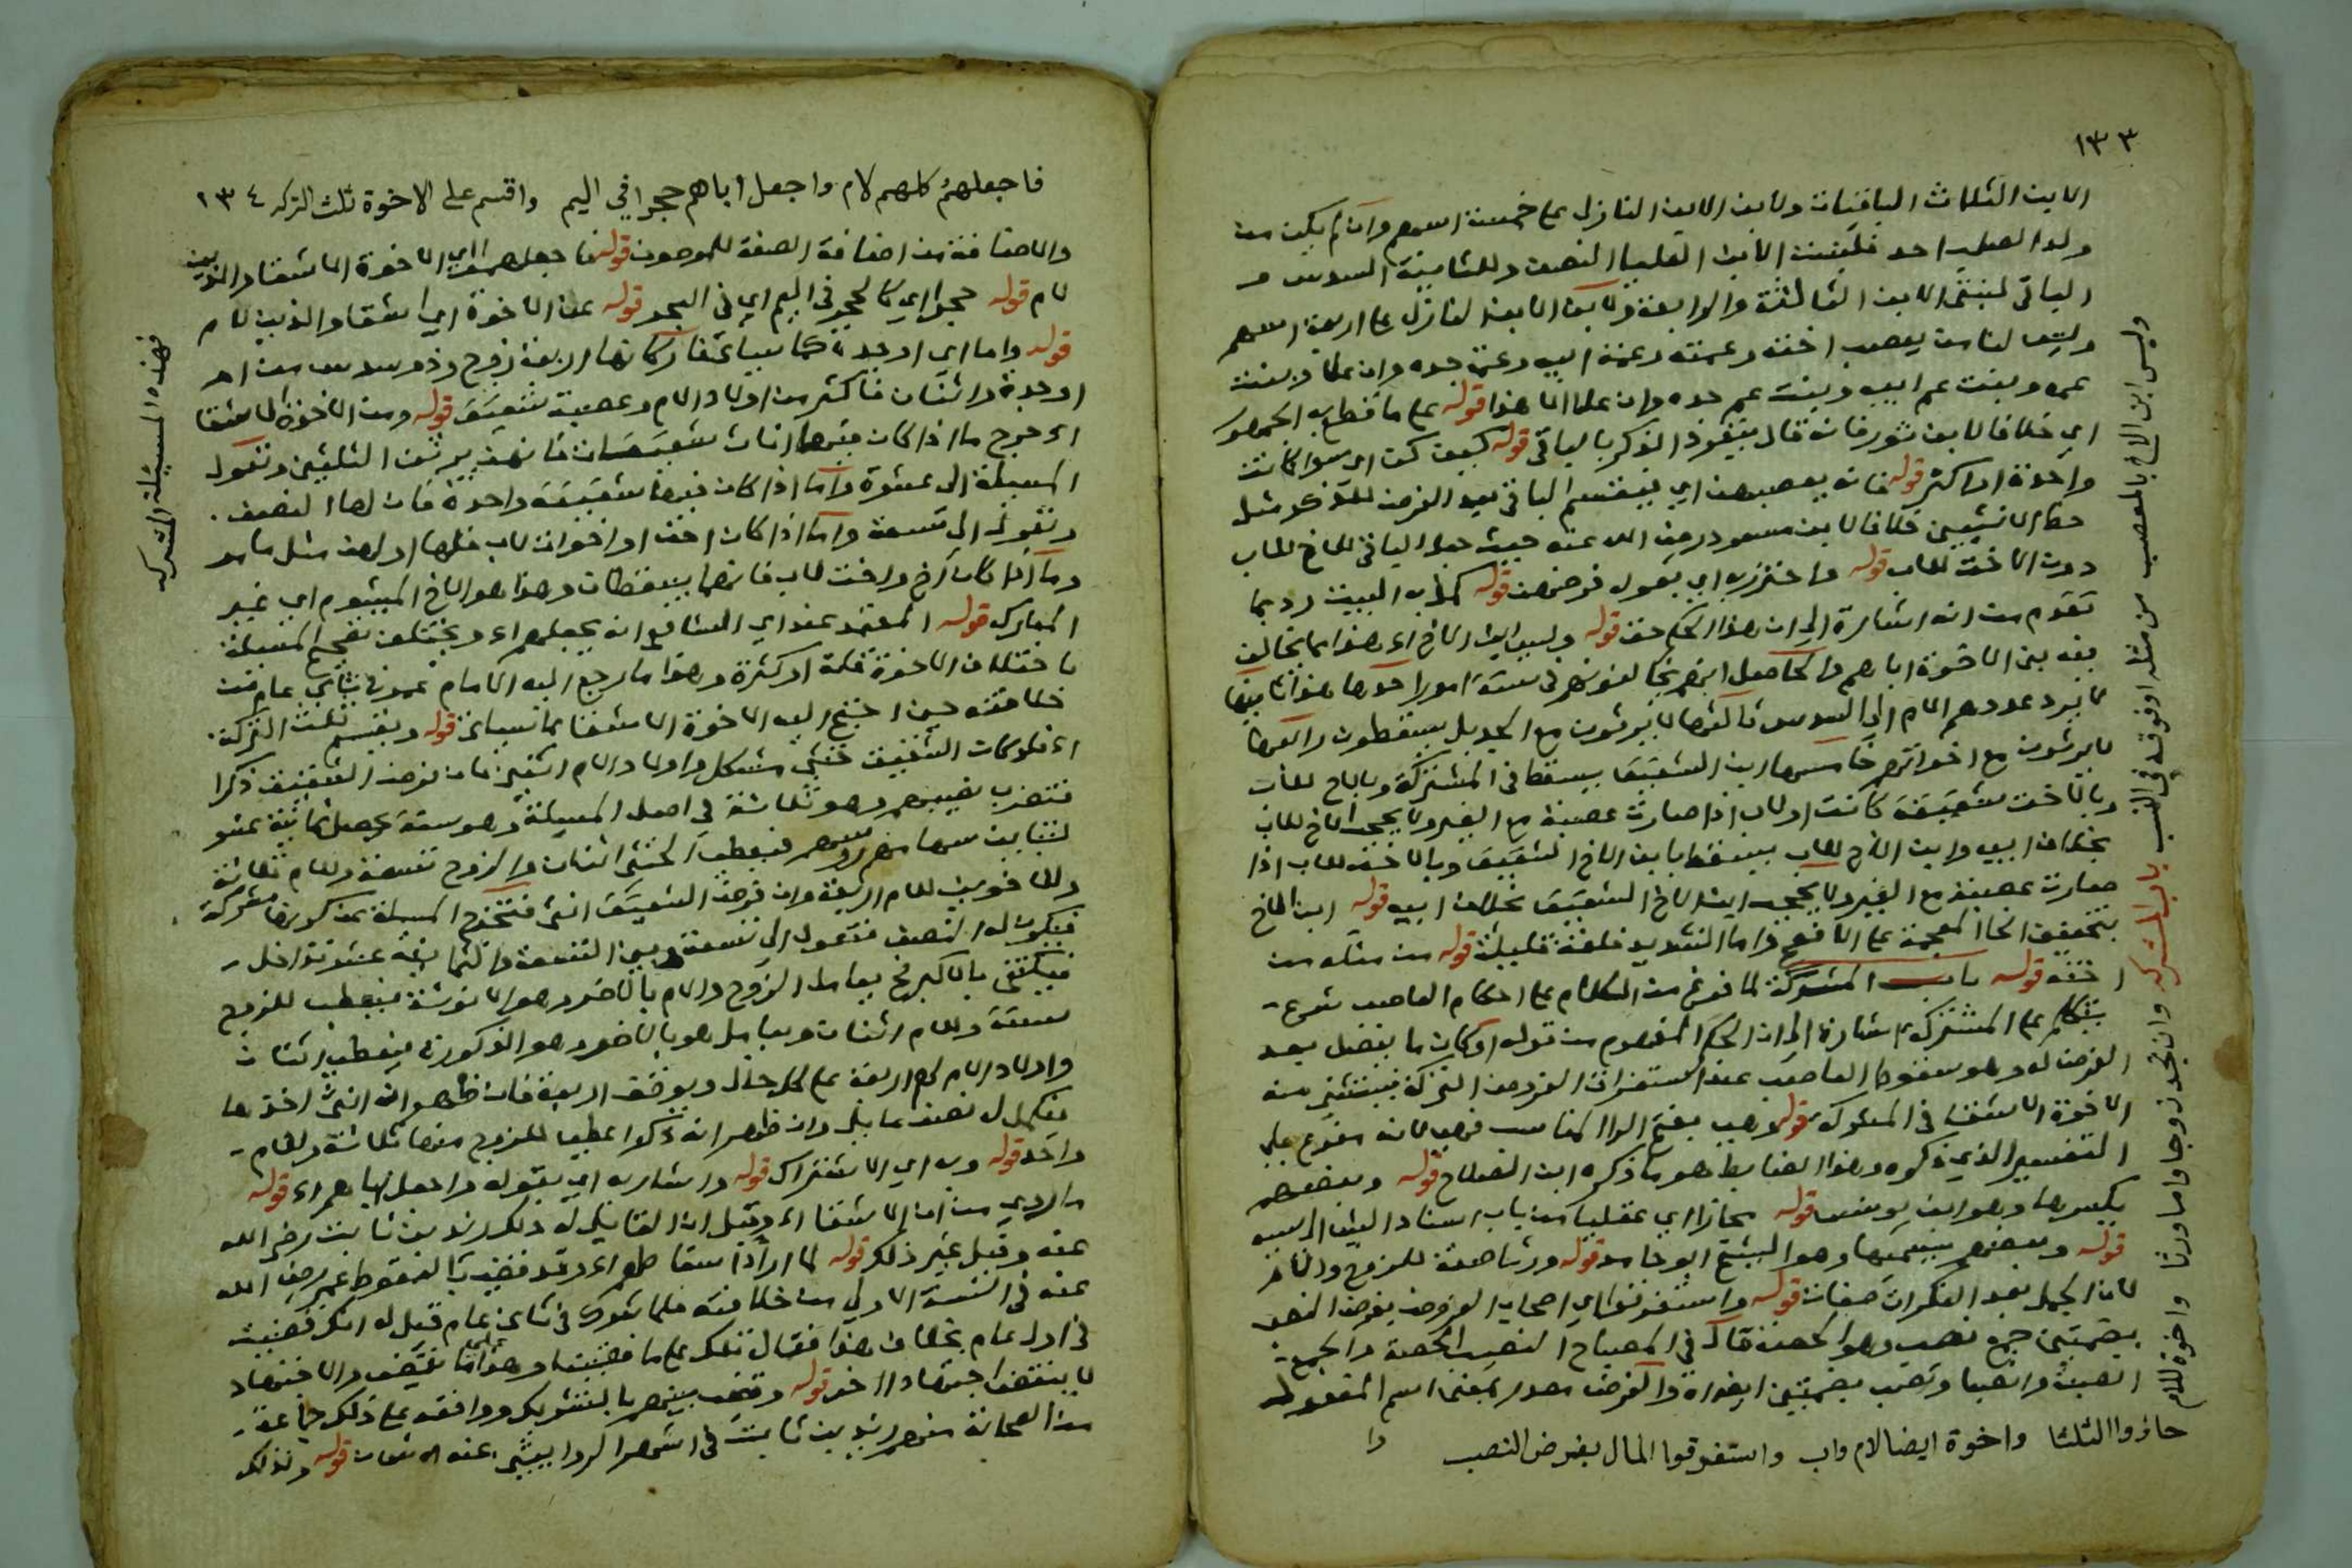 ١٣٣
الابن الثلاث الباقيات ولابن الابن النازل على خمسة اسهم وان لم يكن من
ولد الصلب احد فلبنت الابن العليا النصف وللثانية السدس و
الباقي لبنتي الابن الثالثة والرابعة ولابن الابن النازل على اربعة اسهم
وليس لنا من يعصب اخته وعمته وعمة ابيه وعمة جده وان علا وبنت
عمه وبنت عم ابيه وبنت عم جده وان علا الا هذا قوله على ما قطع به الجمهور
اي خلافا لابي ثور فانه قال ينفرد الذكر بالباقي قوله كيف كن اي سوا كانت
واحدة او اكثر قوله فانه يعصبهن اي فيقسم الباقي بعد الفرض للذكر مثل
حظ الانثيين خلافا لابن مسعود رضي الله عنه حيث جعل الباقي للاخ للاب
دون الاخت للاب قوله واحترز به اي بقوله فرضهن قوله كمل به البيت وربما
تقدم من انه اشارة الى ان هذا الحكم حق قوله وليس ابن الاخ اء هذا مما يخالف
فيه بني الاخوة اباهم والحاصل انهم يخالفونهم في ستة امور احدها هذا ثانيها
لا يرد عددهم الام الى السدس ثالثها لا يرثون مع الجد بل يسقطون رابعها
لا يرثون مع اخواتهم خامسها ابن الشقيق يسقط في المشتركة وبالاخ للاب
وبالاخت شقيقة كانت او لاب اذا صارت عصبة مع الغير ولا يحجب الاخ للاب
بخلاف ابيه وابن الاخ للاب يسقط بابن الاخ الشقيق وبالاخت للاب اذا
صارت عصبة مع الغير ولا يحجب ابن الاخ الشقيق بخلاف ابيه قوله ابن الاخ
بتخفيف الخا المعجمة على الافصح واما التشديد فلغة قليلة قوله من مثله من
اخته قوله باب المشركة لما فرغ من الكلام على احكام العاصب شرع
يتكلم على المشتركة اشارة الى ان الحكم المفهوم من قوله اوكان ما يفضل بعد
الفرض له وهو سقوط العاصب عند استغراق الفروض التركة فيستثنى منه
الاخوة الاشقا في المشركة قوله وهب بفتح الرا المناسب لانه مفرع على
التفسير الذي ذكره وهذا الضابط هو ما ذكره ابن الصلاح قوله وبعضهم
بكسرها وهو ابن يونس قوله مجازا اي عقليا من باب اسناد الشي الى سببه
قوله وبعضهم يسميها وهو الشيخ ابو حامد قوله ورثا صفة للزوج والام
لان الجمل بعد النكرات صفات قوله واستغرقوا اي اصحاب الفروض بفرض النصب
بضمتين جمع نصيب وهو الحصة قال في المصباح النصيب الحصة والجمع
انصبة وانصبا ونصب بضمتين ايضا والفرض مصدر بمعنى اسم المفعول
حازوا الثلثا واخوة ايضا لام واب واستغرقوا المال بفرض النصب
وا
وليس ابن الاخ بالمعصب من مثله او فوقه في النسب باب المشركه وان تجد زوجا واما ورثا واخوة للام
فاجعلهم كلهم لام واجعل اباهم حجرا في اليم واقسم على الاخوة ثلث التركه ١٣٤
والاضافة من اضافة الصفة للموصوف قوله فاجعلهم اي الاخوة الاشقا والذين
لام قوله حجرا اي كالحجر في اليم اي في البحر قوله عن الاخوة اي اشقا والذين لام
قوله واما اي او جدة كما سياتي فاركانها اربعة زوج وذو سدس من ام
او جدة واثنان فاكثر من اولاد الام وعصبة شقيق قوله ومن الاخوة الاشقا
اء خرج ما اذا كان فيها اناث شقيقات فانهن يرثن الثلثين وتعول
المسئلة الى عشرة واما اذا كان فيها شقيقة واحدة فان لها النصف
وتعول الى تسعة واما اذا كان اخت او اخوات لاب فلها او لهن مثل ما مر
وما اذا كان اخ واخت لاب فانهما يسقطان وهذا هو الاخ المشوم اي غير
المبارك قوله المعتمد عند اي الشافعي انه يجعلهم اء ويختلف تصحيح المسئلة
باختلاف الاخوة قلة او كثرة وهذا ما رجع اليه الامام عمر في ثاني عام من
خلافته حين احتج اليه الاخوة الاشقا بما سياتي قوله ويقسم ثلث التركة
اء فلو كان الشقيق خنثى مشكل واولاد الام اثنين فان فرض الشقيق ذكرا
فتضرب نصيبهم وهو ثلاثة في اصل المسئلة وهو ستة يحصل ثمانية عشر
لتباين سهامهم رووسهم فيعطى الخنثى اثنان والزوج تسعة وللام ثلاثة
وللاخوين للام اربعة وان فرض الشقيق انثى فتخرج المسئلة عن كونها مشركة
فيكون له النصف فتعول الى تسعة وبين التسعة والثمانية عشر تداخل
فيكتفى بالاكبر فيعامل الزوج والام بالاضر وهو الانوثة فيعطى للزوج
ستة وللام اثنان ويعامل هو بالاضر وهو الذكورة فيعطى اثنان
واولاد الام لهم اربعة على كل حال ويوقف اربعة فان ظهر انه انثى اخذها
فيكمل له نصف عايل وان ظهر انه ذكر اعطيا للزوج منها ثلاثة وللام
واحد قوله وبه اي الاشتراك قوله واشار به اي بقوله واجعل اباهم اء قوله
ما روي من ان الاشقا اء وقيل ان القايل له ذلك زيد بن ثابت رضي الله
عنه وقيل غير ذلك قوله لما اراد اسقاطهم اء وقد قضى بالسقوط عمر رضي الله
عنه في السنة الاولى من خلافته فلما شرك في ثاني عام قيل له انك قضيت
في اول عام بخلاف هذا فقال تلك على ما قضينا وهذا على ما نقضي والاجتهاد
لا ينقض اجتهاد اخر قوله وقضى بينهم بالتشريك ووافقه على ذلك جماعة
من الصحابة منهم زيد بن ثابت في اشهر الروايتين عنه قوله وذلك
فهذه المسئلة المشركه